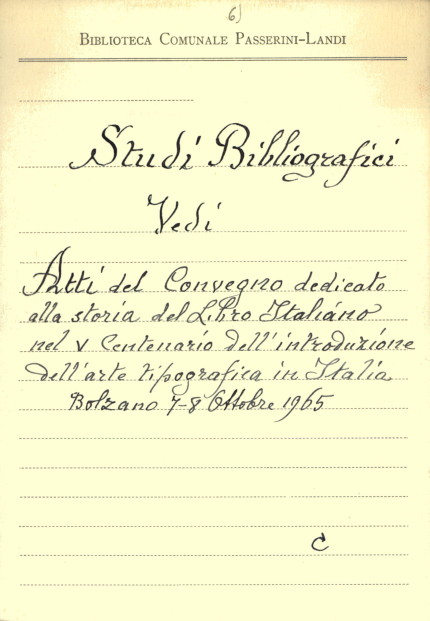 6)
BIBLIOTECA COMUNALE PASSERINI-LANDI
Studi Bibliografici
Vedi
Atti del Convegno dedicato
alla storia del Libro Italiano
nel V Centenario dell'introduzione
dell'arte tipografica in Italia
Bolzano 7-8 Ottobre 1965
C